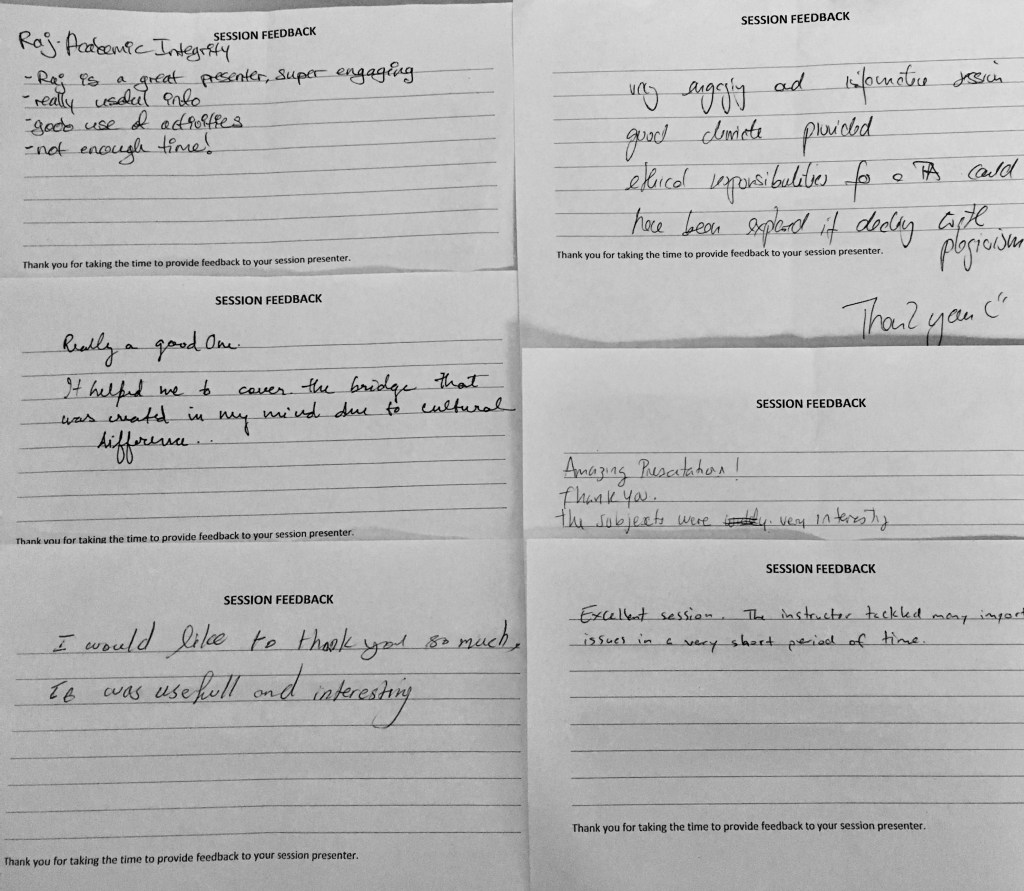 SESSION FEEDBACK
Raj - Academic Integrity
- Raj is a great presenter, super engaging
- really useful info
- good use of activities
- not enough time!
Thank you for taking the time to provide feedback to your session presenter.
SESSION FEEDBACK
Really a good One.
It helped me to cover the bridge that
was created in my mind due to cultural
difference..
Thank you for taking the time to provide feedback to your session presenter.
SESSION FEEDBACK
I would like to thank you so much,
It was usefull and interesting
Thank you for taking the time to provide feedback to your session presenter.
SESSION FEEDBACK
very engaging and informative session
good climate provided
ethical responsibilities for a TA could
have been explored if dealing with
plagiarism
Thank you for taking the time to provide feedback to your session presenter.
Thank you
SESSION FEEDBACK
Amazing Presentation!
Thank you.
the subjects were very interesting
SESSION FEEDBACK
Excellent session. The instructor tackled many import
issues in a very short period of time.
Thank you for taking the time to provide feedback to your session presenter.